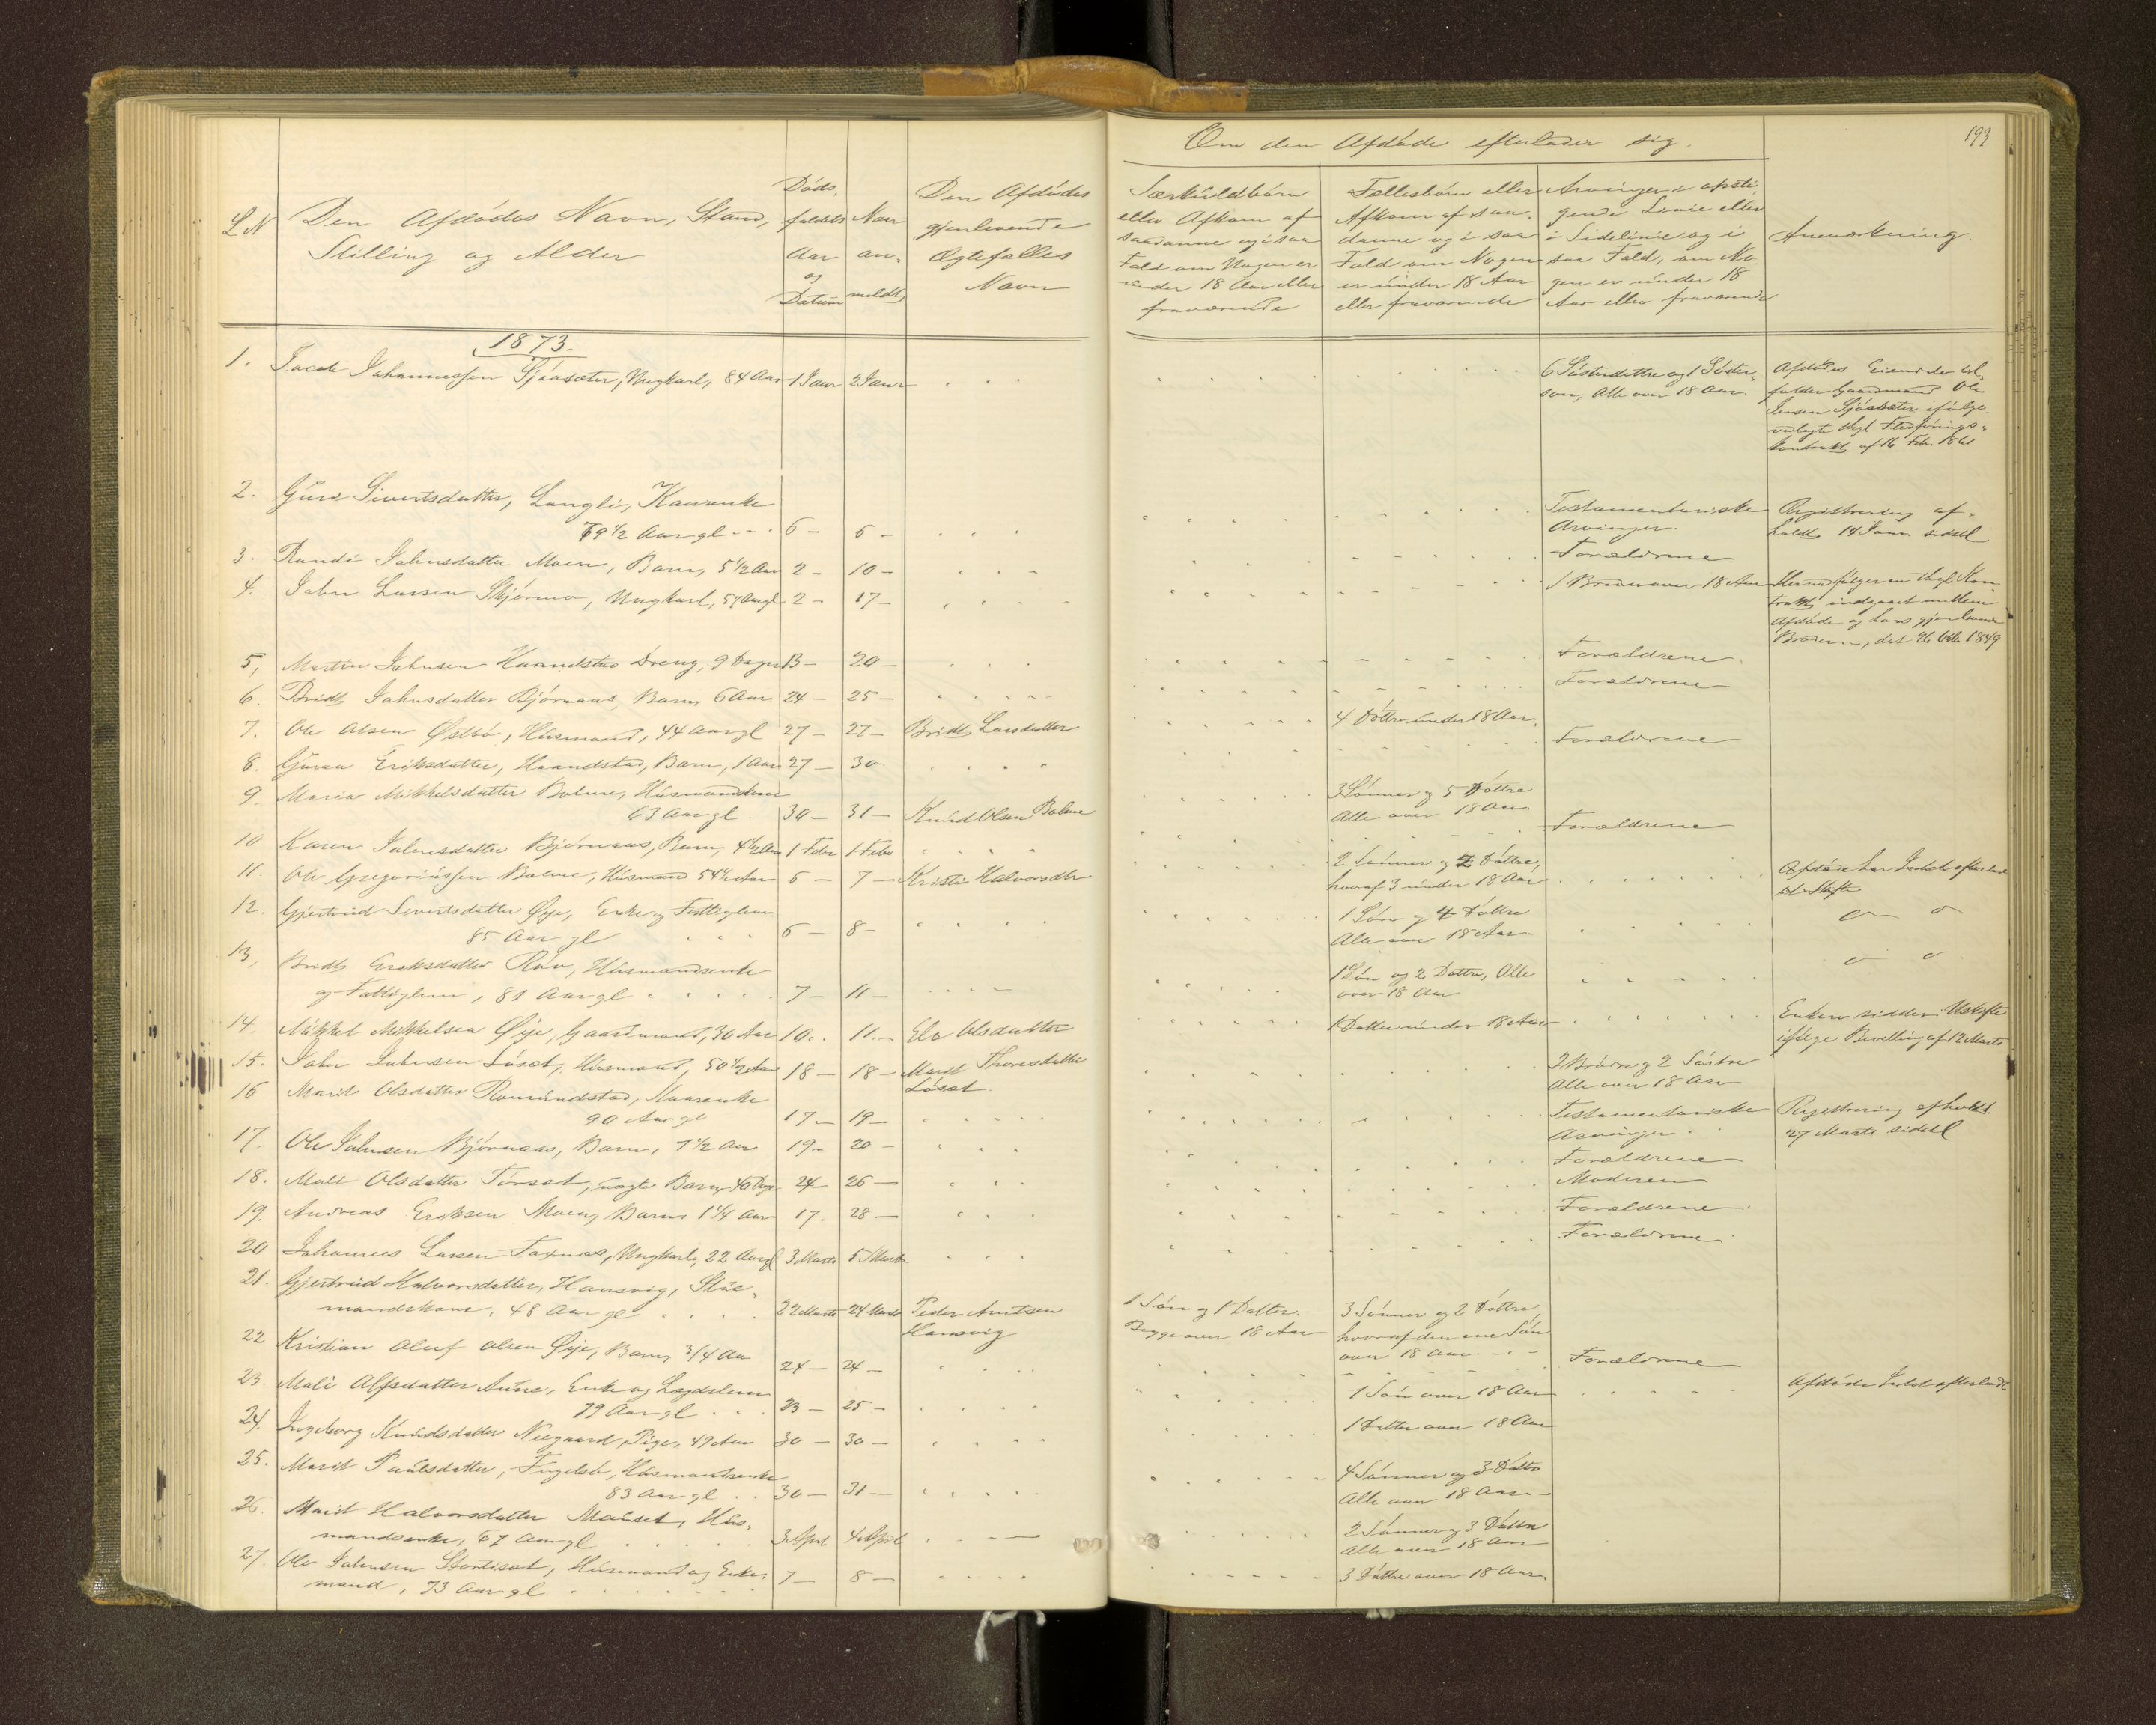 193
Om den Afdøde efterlader sig.
L N
Den Afdødes Navn, Stand,
Stilling og Alder
Døds-
faldets
Aar
og
Datum
Naar
an-
meldt,
Den Afdødes
gjenlevende
Ægtefælles
Navn
Særkuldbørn
eller Afkom af
saadanne og i saa
Fald om Nogen er
under 18 Aar eller
fraværende
Fællesbørn eller
Afkom af saa-
danne og i saa
Fald om Nogen
er under 18 Aar
eller fraværende
Arvinger i opsti-
gende Linie eller
i Sidelinie og i
saa Fald, om No-
gen er under 18
Aar eller fraværende
Anmærkning.
1873.
1. Jacob Johannessen Sjøasæter, Ungkarl, 84 Aar 1 Janr 2 Janr
6 Søsterdøttre og 1 Søster-
søn, Alle over 18 Aar.
Afdødes Eiendele til-
falder Gaardmand Ole
Jensen Sjøasæter ifølge
vedlagte thgl.
Kontrakt af 16 Feb. 1861
2. Guru Sivertsdatter, Langli, Kaarenke
79 1/2 Aar gl - - 6 - 6 -
Testamentariske
Arvinger.
Registrering af-
holdt 14 Janr. sidstl
3. Randi Jahnsdatter Moen, Barn, 5 1/2 Aar 2 - 10 - Forældrene
4. Jahn Larsen Skjørmo, Ungkarl, 57 Aar gl 2 - 17 - 1 Broder over 18 Aar
Hermed følger en thgl. Kon-
trakt indgaaet mellem
Afdøde og hans gjenlevende
Broder, dat 26 1849
5, Martin Jahnsen Haandstad Dreng, 9 Dage 13 - 20 - Forældrene
6. Bridt Jahnsdatter Bjørnaas, Barn, 6 Aar 24 - 25 - Forældrene
7. Ole Olsen Østbø, Husmand, 44 Aar gl 27 - 27 - Bridt Larsdatter 4 Døttre under 18 Aar.
8. Guraa Eriksdatter, Haandstad, Barn, 1 Aar 27 - 30 Forældrene
9. Maria Mikkelsdatter Bolme, Husmandskone
63 Aar gl. 30 - 31 - Knud Olsen Bolme
3 Sønner og 5 Døttre
Alle over 18 Aar
10 Karen Jahnsdatter Bjørnaas, Barn, 4 1/2 Aar 1 Febr 1 Febr Forældrene
11. Ole Gregoriussen Bolme, Husmand 54 1/2 Aar 6 - 7 - Kristi Halvorsdtr
2 Sønner og 2 Døttre,
hvoraf 3 under 18 Aar
Afdøde har Intet efterladt
at skifte
12. Gjertrud Sivertsdatter Øye, Enke og Fattiglem
85 Aar gl 6 - 8 -
1 Søn og 4 Døttre
Alle over 18 Aar
13, Bridt Eriksdatter Røv, Husmandsenke
og Fattiglem, 81 Aar gl 7 - 11 -
1 Søn og 2 Døttre, Alle
over 18 Aar
14. Mikkel Mikkelsen Øye, Gaardmand, 30 Aar 10. 11. - Elo Olsdatter 1 Datter under 18 Aar
Enken sidder i Uskifte
ifølge Bevilling af 12 Marts
15. Jahn Jahnsen Løset, Husmand, 50 1/2 Aar 18 - 18 - Marit Thoresdatter
Løset.
2 Brødre og 2 Søstre
Alle over 18 Aar
16 Marit Olsdatter Romundstad, Kaarenke
90 Aar gl 17 - 19 -
Testamentariske
Arvinger
Registrering afholdt
27 Marts sidstl
17. Ole Jahnsen Bjørnaas, Barn, 7 1/2 Aar 19 - 20 - Forældrene
18. Mali Olsdatter Torset, uægte Barn, 40 Dage 24 26 - Moderen
19. Andreas Eriksen Moen, Barn 1 1/4 Aar 17. 28 - Forældrene
20 Johannes Larsen Foxnæs, Ungkarl, 22 Aar gl 3 Marts 5 Marts Forældrene
21. Gjertrud Halvorsdatter, Hamsvig, Hus-
mandskone, 48 Aar gl 22 Marts 24 Marts Peder Arntsen
Hamsvig
1 Søn og 1 Datter.
Begge over 18 Aar
3 Sønner og 2 Døttre,
hvoraf den ene Søn
over 18 Aar
22 Kristian Oluf Olsen Øye, Barn, 3/4 Aar
24 - 24 - Forældrene
23. Mali Alfsdatter Aune, Enke og Lægdslem
79 Aar gl 23 - 25 - 1 Søn over 18 Aar Afdøde Intet efterladt
24. Ingeborg Knudsdatter Negaard, Pige, 49 Aar 30 - 30 - 1 Datter over 18 Aar
25. Marit Paulsdatter, Fugelsø, Husmandsenke
83 Aar gl 30 - 31 -
4 Sønner og 3 Døttre
Alle over 18 Aar -
26. Marit Halvorsdatter Mauset, Hus-
mandsenke, 67 Aar gl 3 April 4 April
2 Sønner og 3 Døttre
Alle over 18 Aar
27. Ole Jahnsen Stortiset, Husmand og Enke-
mand, 73 Aar gl 7 - 8 - 3 Døttre over 18 Aar.